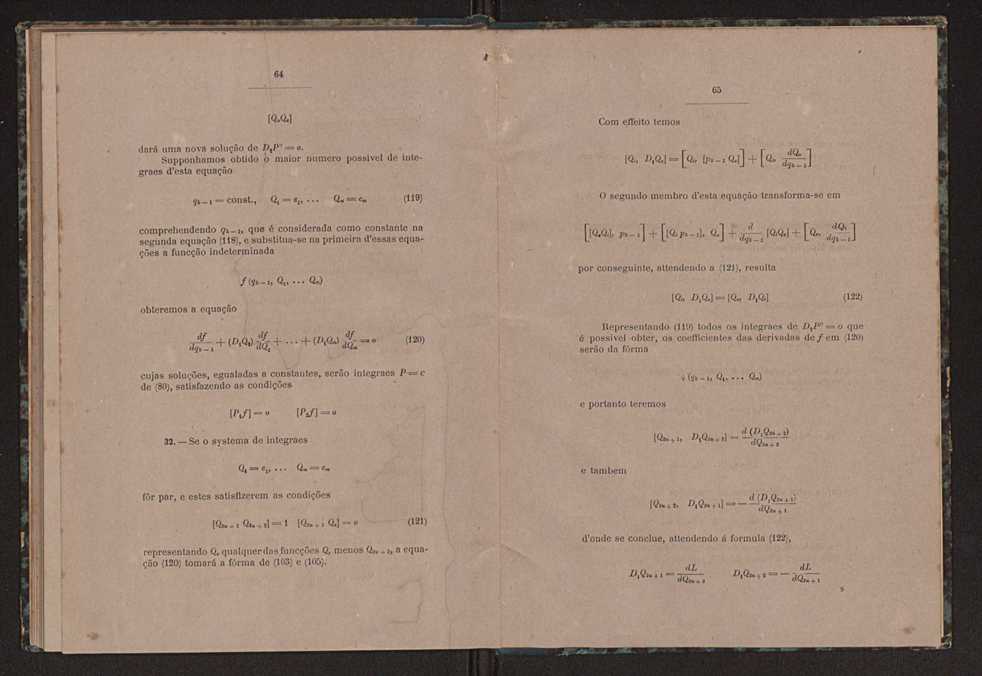 64
[QₐQₑ]
dará uma nova solução de D₁P' = o.
Supponhamos obtido o maior numero possivel de inte-
graes d'esta equação
qₖ₋₁ = const., Q₁ = e₁, ... Qₘ = cₘ (119)
comprehendendo qₖ₋₁, que é considerada como constante na
segunda equação (118), e substitua-se na primeira d'essas equa-
ções a funcção indeterminada
f (qₖ₋₁, Q₁, ... Qₘ)
obteremos a equação
df/dqₖ₋₁ + (D₁Q₁) df/dQ₁ + ... + (D₁Qₘ) df/dQₘ = o (120)
cujas soluções, egualadas a constantes, serão integraes P = c
de (80), satisfazendo as condições
[P₁f] = o [P₂f] = o
32. — Se o systema de integraes
Q₁ = c₁, ... Qₘ = cₘ
fôr par, e estes satisfizerem as condições
[Q₂ₙ₊₁ Q₂ₙ₊₂] = 1 [Q₂ₙ₊₁ Qₛ] = o (121)
representando Qₛ qualquer das funcções Q, menos Q₂ₙ₊₂, a equa-
ção (120) tomará a fórma de (103) e (105).
65
Com effeito temos
[Qᵢ, D₁Qₑ] = [Qᵢ, [pₖ₋₁ Qₑ]] + [Qᵢ, dQₑ/dqₖ₋₁]
O segundo membro d'esta equação transforma-se em
[[QₑQᵢ], pₖ₋₁] + [[Qᵢ pₖ₋₁], Qₑ] + d/dqₖ₋₁ [QᵢQₑ] + [Qₑ, dQᵢ/dqₖ₋₁]
por conseguinte, attendendo a (121), resulta
[Qᵢ, D₁Qₑ] = [Qₑ, D₁Qᵢ] (122)
Representando (119) todos os integraes de D₁P' = o que
é possivel obter, os coefficientes das derivadas de f em (120)
serão da fórma
φ (qₖ₋₁, Q₁, ... Qₘ)
e portanto teremos
[Q₂ₙ₊₁, D₁Q₂ₙ₊₂] = d (D₁Q₂ₙ₊₂)/dQ₂ₙ₊₂
e tambem
[Q₂ₙ₊₂, D₁Q₂ₙ₊₁] = — d (D₁Q₂ₙ₊₁)/dQ₂ₙ₊₁
d'onde se conclue, attendendo á formula (122),
D₁Q₂ₙ₊₁ = dL/dQ₂ₙ₊₂ D₁Q₂ₙ₊₂ = — dL/dQ₂ₙ₊₁